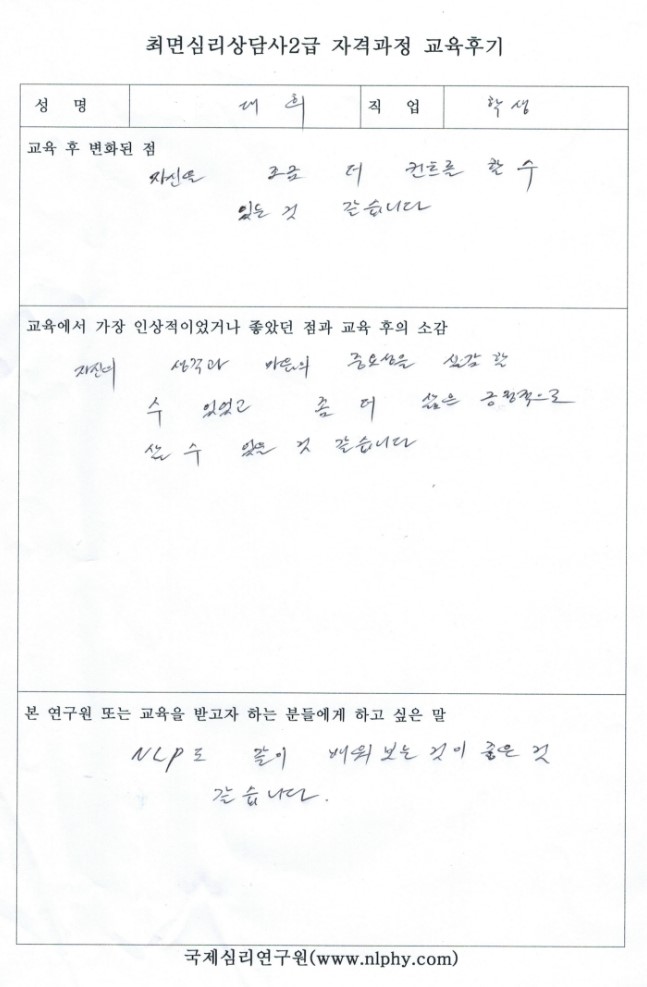 최면심리상담사2급 자격과정 교육후기
성 명 대 희 직 업 학생
교육 후 변화된 점
자신을 조금 더 컨트롤 할 수
있는 것 같습니다
교육에서 가장 인상적이었거나 좋았던 점과 교육 후의 소감
자신의 생각과 마음의 중요성을 실감 할
수 있었고 좀 더 삶은 긍정적으로
살 수 있을 것 같습니다
본 연구원 또는 교육을 받고자 하는 분들에게 하고 싶은 말
NLP도 같이 배워 보는 것이 좋은 것
같습니다.
국제심리연구원(www.nlphy.com)